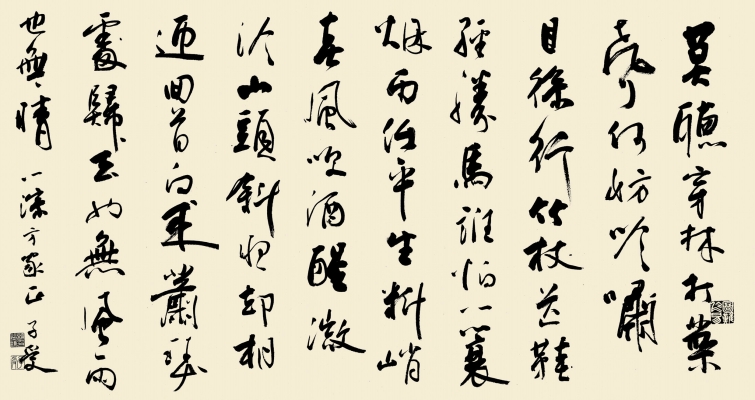 莫聽穿林打葉
聲何妨吟嘯
且徐行竹杖芒鞋
輕勝馬誰怕一蓑
烟雨任平生料峭
春風吹酒醒微
冷山頭斜照却相
迎回首向來蕭瑟
處歸去也無風雨
也無晴 方家正